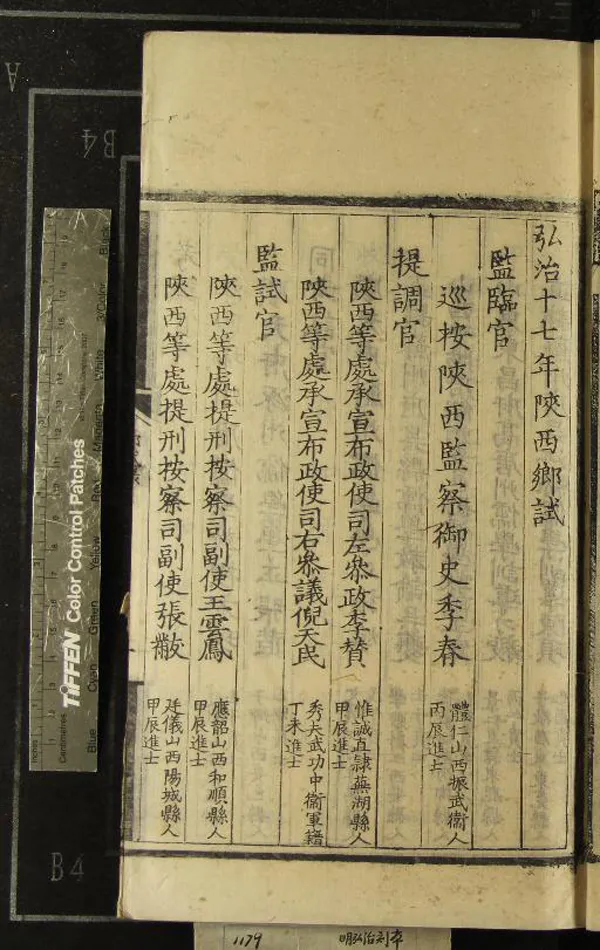 弘治十七年陝西鄉試
監臨官
巡按陝西監察御史季春
體仁山西振武衛人
丙辰進士
提調官
陝西等處承宣布政使司左叅政李贊
惟誠直隸蕪湖縣人
甲辰進士
陝西等處承宣布政使司右叅議倪天民
秀夫武功中衛軍籍
丁未進士
監試官
陝西等處提刑按察司副使王雲鳳
應韶山西和順縣人
甲辰進士
陝西等處提刑按察司副使張黻
廷儀山西陽城縣人
甲辰進士
B4
A
B4
TIFFEN Color Control Patches
Inches
Centimetres
Blue
Cyan
Green
Yellow
Red
Magenta
White
3/Color
Black
1179
明弘治刻本